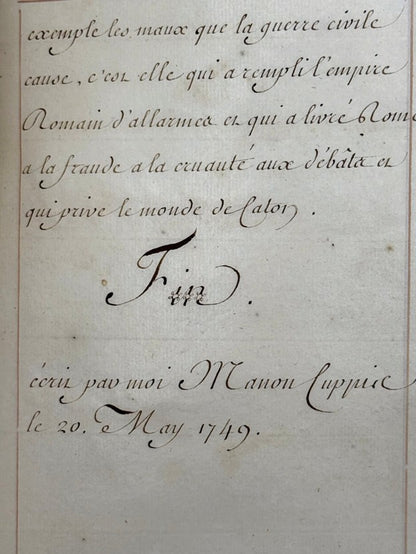 exemple les maux que la guerre civile
cause, c'est elle qui a rempli l'empire
Romain d'allarmes et qui a livré Rome
a la fraude a la cruauté aux débâts et
qui prive le monde de Caton.
Fin.
écrit par moi Manon Cuppie
le 20. May 1749.